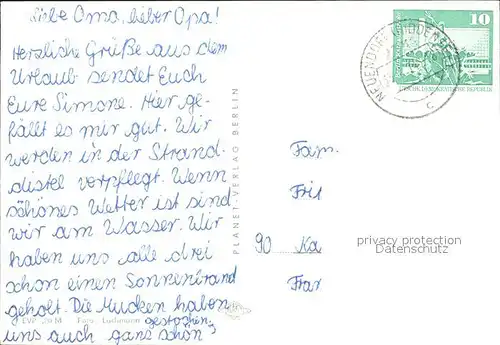 Liebe Oma, lieber Opa!
Herzliche Grüße aus dem
Urlaub sendet Euch
Eure Simone. Hier ge-
fällt es mir gut. Wir
werden in der Strand-
distel verpflegt. Wenn
schönes Wetter ist sind
wir am Wasser. Wir
haben uns alle drei
schon einen Sonnenbrand
geholt. Die Mucken haben
uns auch ganz schön
gestochen.
PLANET-VERLAG BERLIN
EVP
M
Foto
NEUENDORF (HIDDENSEE)
c
10
DEMOKRATISCHE REPUBLIK
Fam.
Fri
90 Ka
Fra
privacy protection
Datenschutz